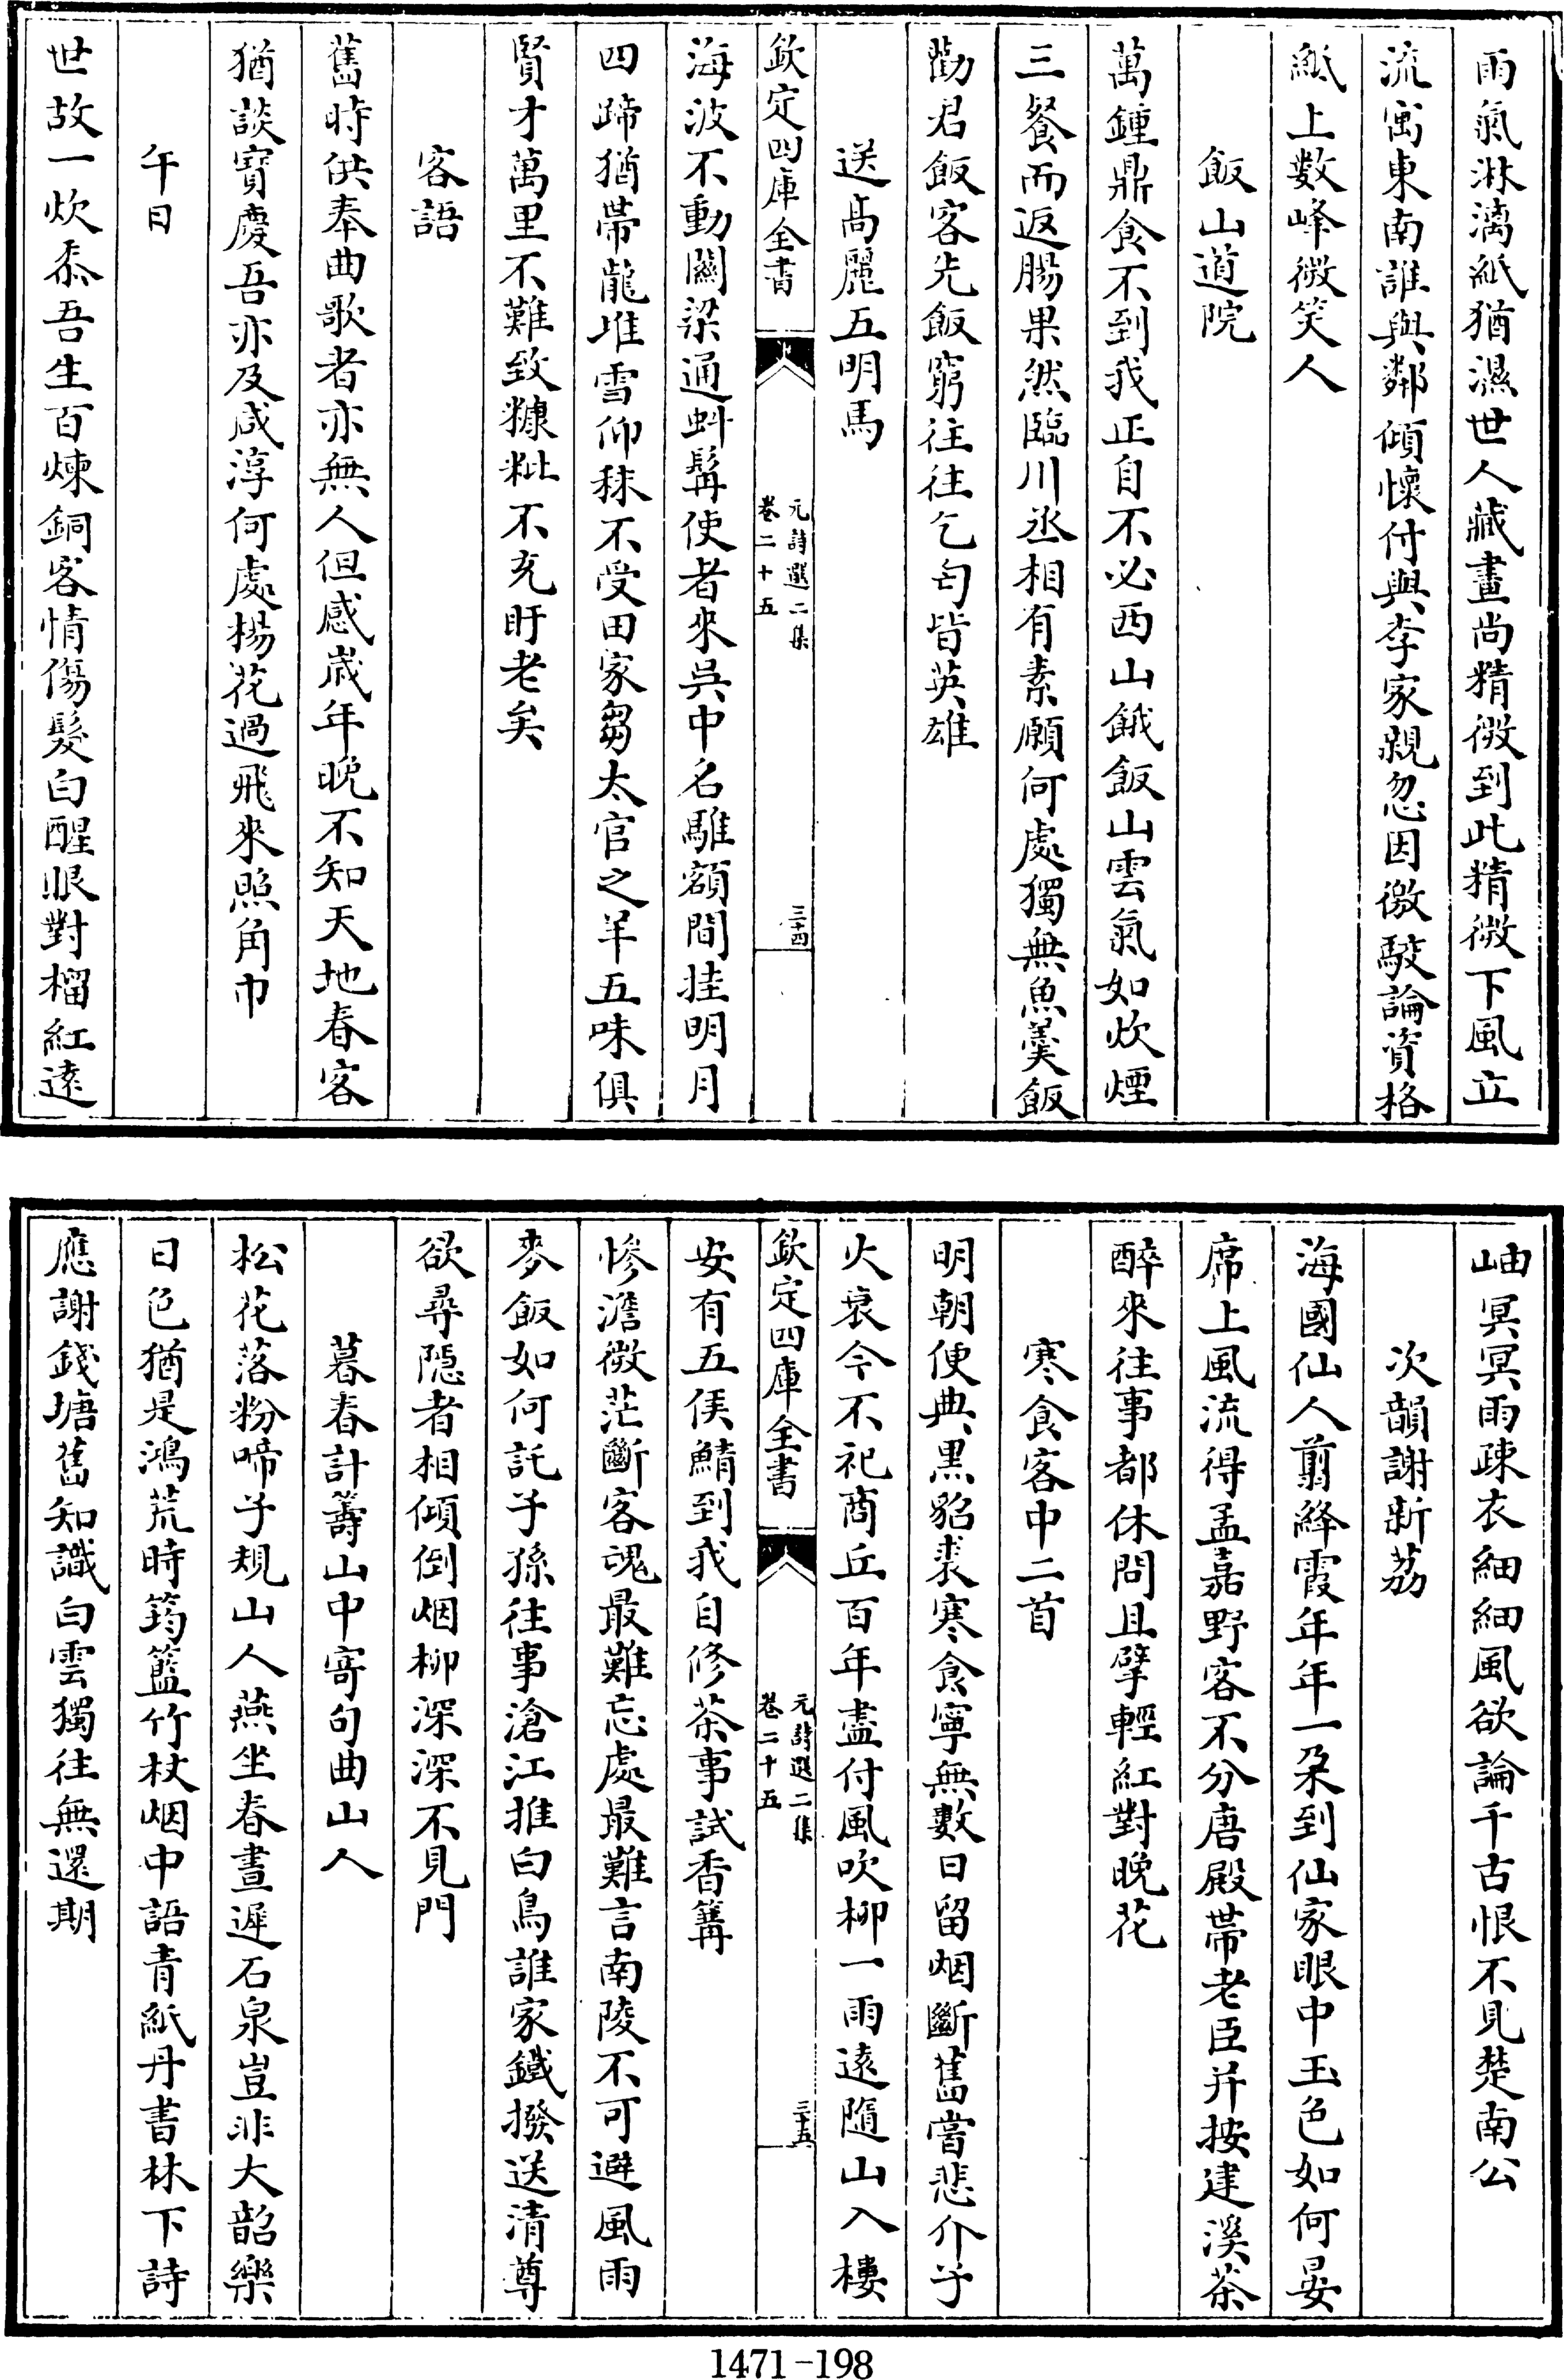 雨氣淋漓紙猶濕世人藏畫尚精微到此精微下風立
流寓東南誰與鄰傾懷付與李家親忽因徼駮論資格
紙上數峰微笑人
飯山道院
萬鍾鼎食不到我正自不必西山餓飯山雲氣如炊煙
三餐而返腸果然臨川丞相有素願何處獨無魚羹飯
勸君飯客先飯窮往往乞匄皆英雄
送高麗五明馬
欽定四庫全書
元詩選二集
卷二十五
三十四
海波不動關梁通蚪髯使者來吳中名騅額間挂明月
四蹄猶帶龍堆雪仰秣不受田家芻太官之羊五味俱
賢才萬里不難致糠粃不充盱老矣
客語
舊時供奉曲歌者亦無人但感歲年晚不知天地春客
猶談寶慶吾亦及咸淳何處楊花過飛來照角巾
午日
世故一炊黍吾生百煉銅客情傷髮白醒眼對榴紅遠
岫冥冥雨疎衣細細風欲論千古恨不見楚南公
次韻謝新荔
海國仙人翦絳霞年年一朶到仙家眼中玉色如何晏
席上風流得孟嘉野客不分唐殿帶老臣幷按建溪茶
醉來往事都休問且擘輕紅對晚花
寒食客中二首
明朝便典黑貂裘寒食寧無數日留烟斷舊嘗悲介子
火衰今不祀商丘百年盡付風吹柳一雨遠隨山入樓
欽定四庫全書
元詩選二集
卷二十五
三十五
安有五侯鯖到我自修茶事試香篝
慘澹微茫斷客魂最難忘處最難言南陵不可避風雨
麥飯如何託子孫往事滄江推白鳥誰家鐵撥送清尊
欲尋隱者相傾倒烟柳深深不見門
暮春計籌山中寄句曲山人
松花落粉啼子規山人燕坐春晝遲石泉豈非大韶樂
日色猶是鴻荒時筠籃竹杖烟中語青紙丹書林下詩
應謝錢塘舊知識白雲獨往無還期
1471-198